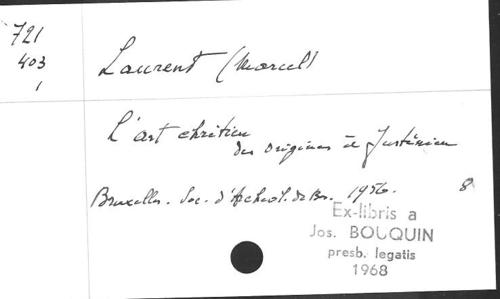 721
403
1
Laurent (Marcel)
L'art chrétien
des origines à Justinien
Bruxelles. Soc. d'Archéol. de Br. 1956. 8
Ex-libris a
Jos. BOUQUIN
presb. legatis
1968